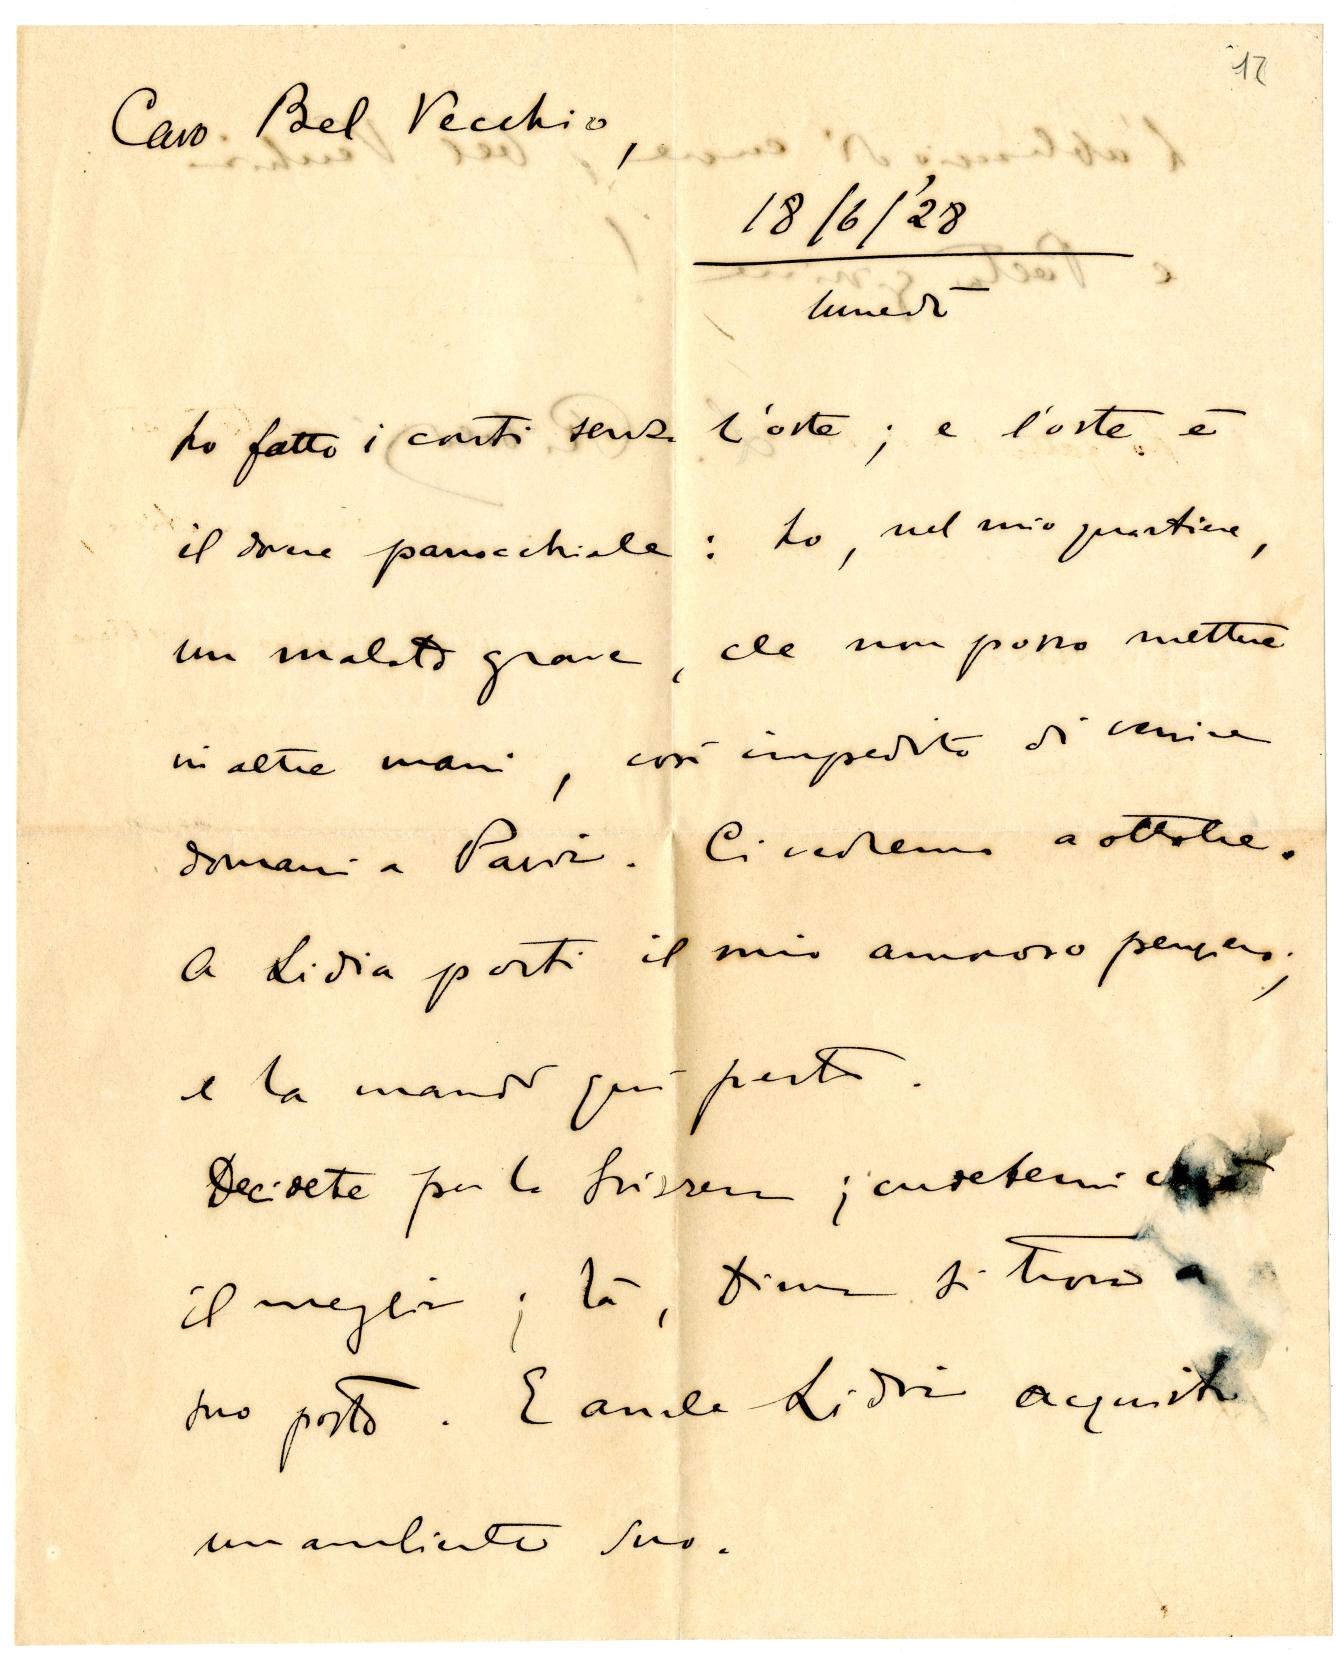 12
Caro Bel Vecchio,
18/6/'28
lunedì
ho fatto i conti senza l'oste; e l'oste è
il dovere parrocchiale: ho, nel mio quartiere,
un malato grave, che non posso mettere
in altre mani, così impedito di venire
domani a Pavia. Ci vedremo a ottobre.
A Lidia porti il mio amoroso pensiero;
e la mando qui presto.
Decidete per la Svizzera; credetemi è
il meglio; là, si trova a
suo posto. E anche Lidia acquista
un ambiente suo.